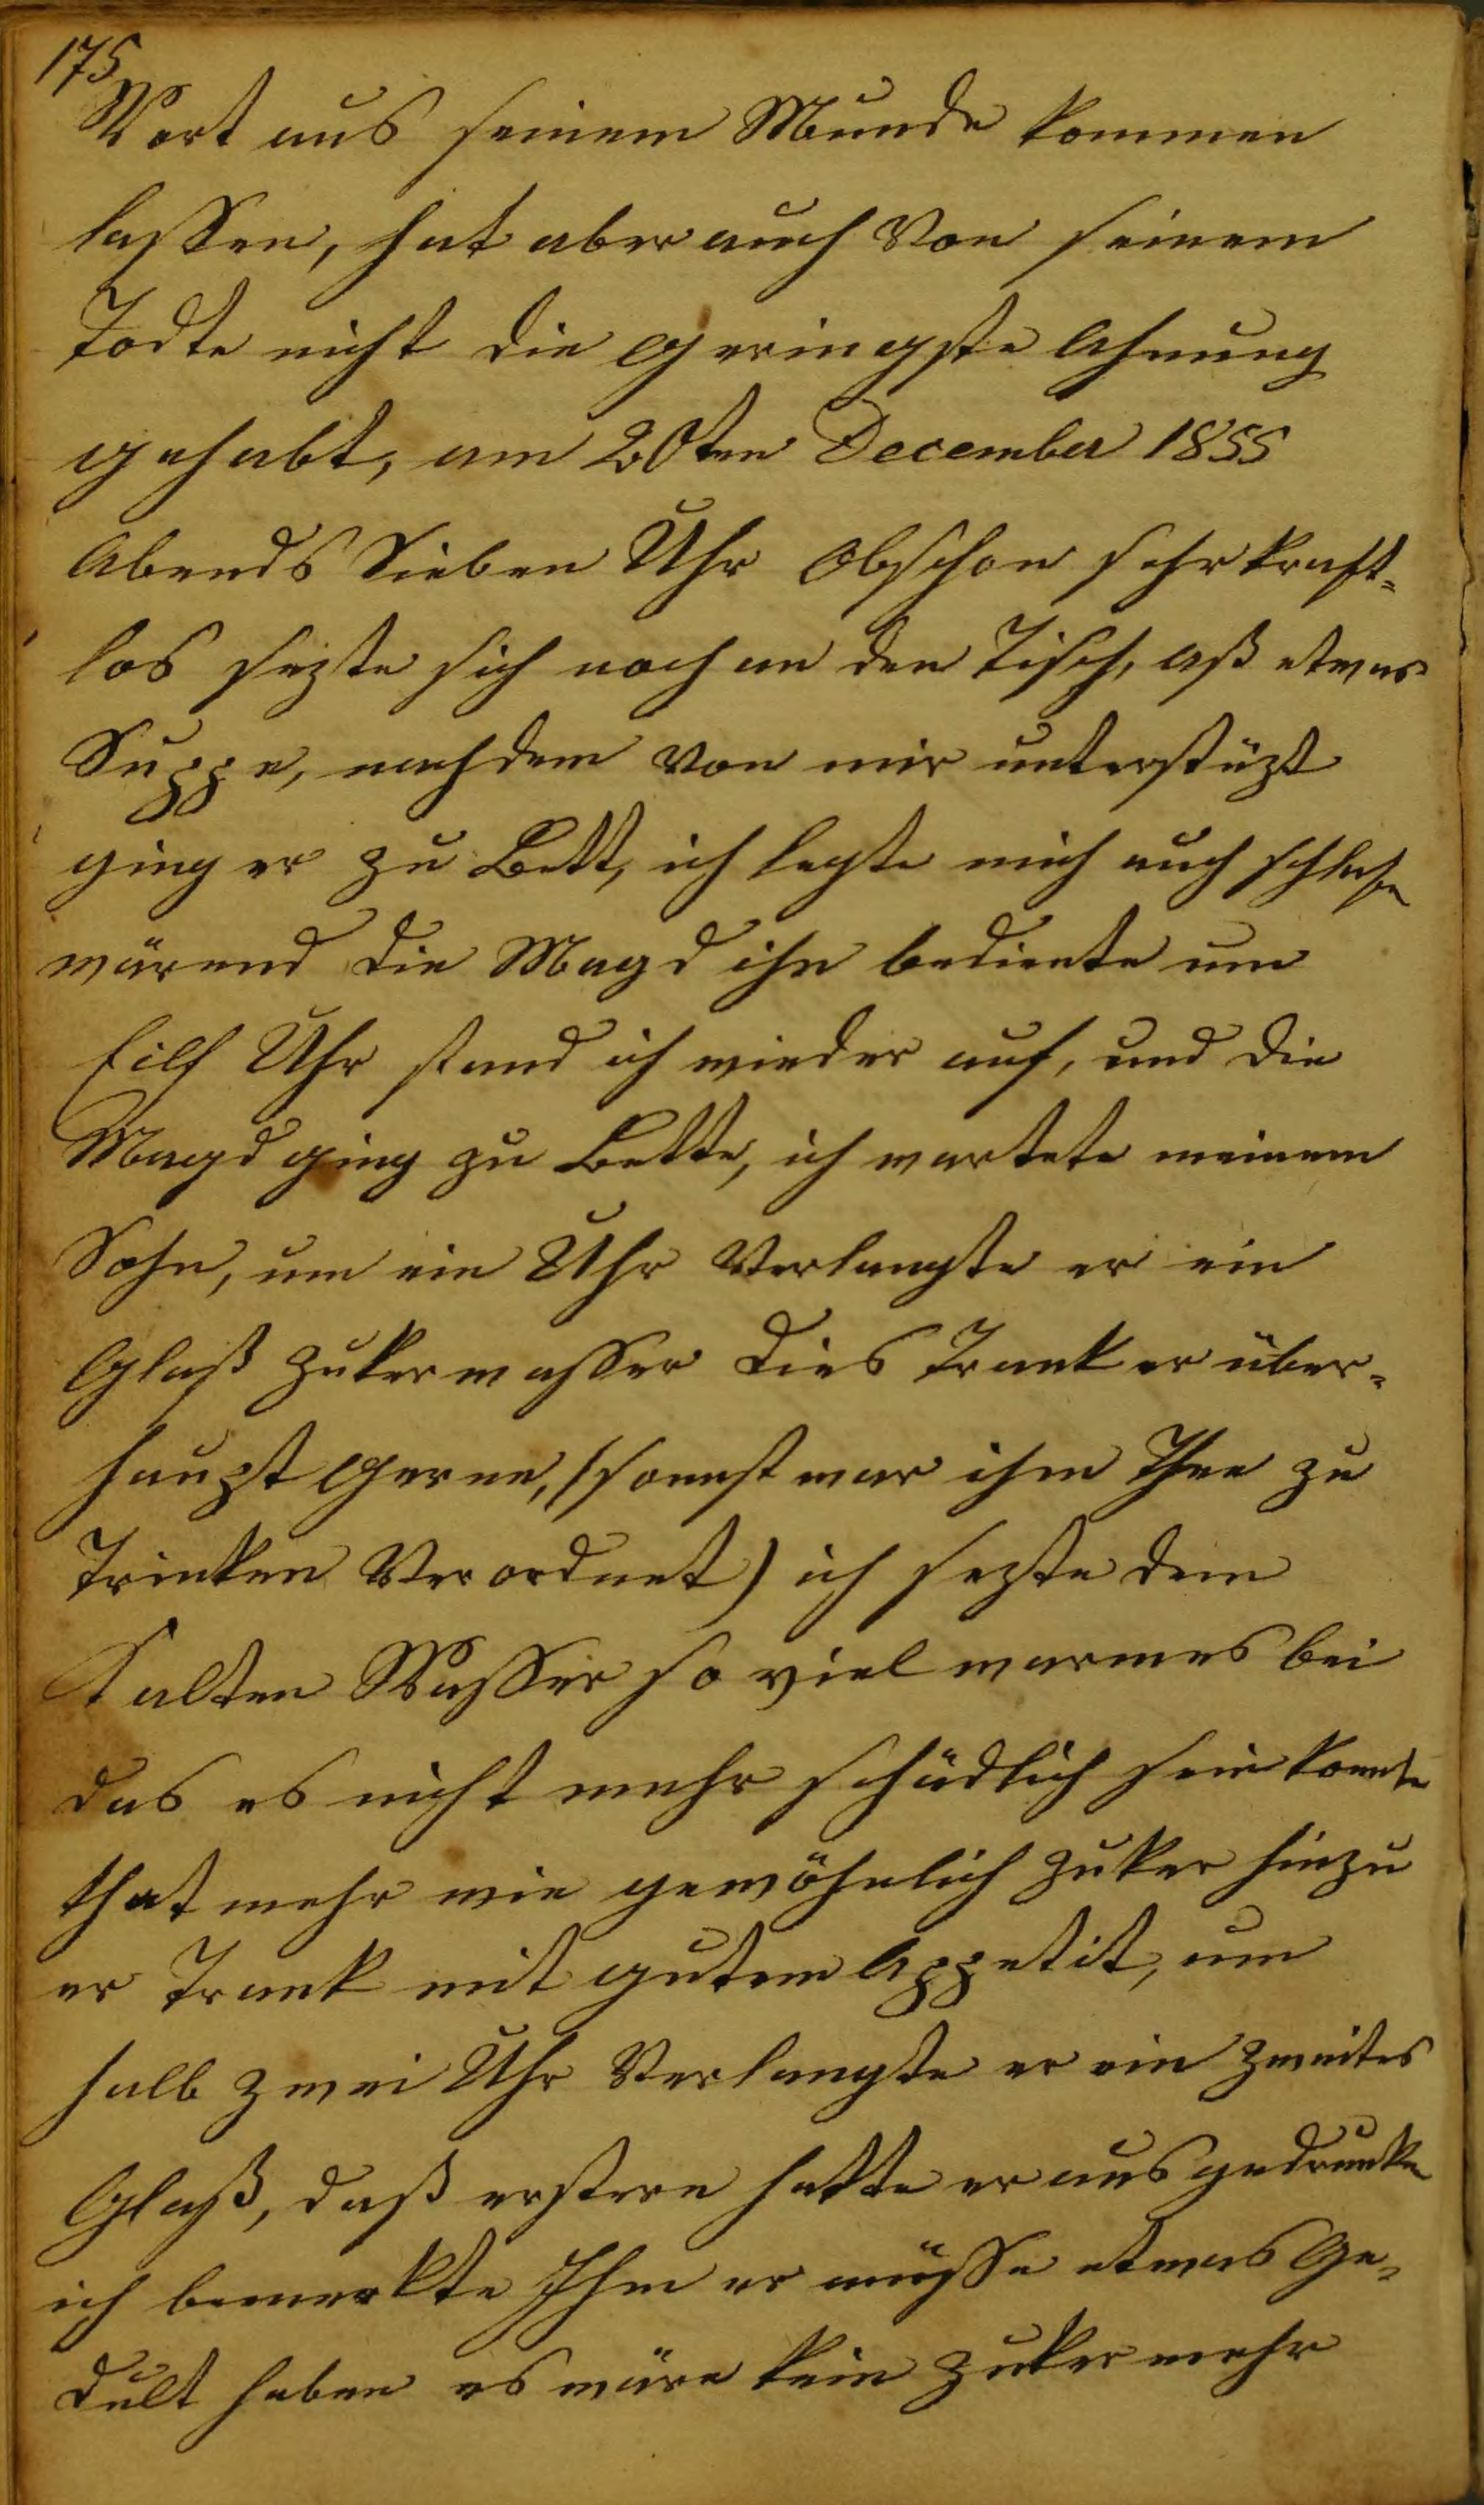 175
Wort aus seinem Munde kommen
lassen, hat aber auch von seinem
Todte nicht die Geringste Ahnung
gehabt, am 20ten December 1855
Abends Sieben Uhr Obschon sehr kraft=
los sezte sich noch an den Tisch, aß etwas
Suppe, nachdem von mir unterstüzt
ging er zu Bett, ich legte mich auch schlafen
wärend die Magd ihn bediente um
Eilf Uhr stand ich wieder auf, und die
Magd ging zu Bette, ich wartete meinem
Sohn, um ein Uhr Verlangte er ein
Glaß Zukerwasser dies Trank er über=
haupt Gerne, (sonnst war ihm Thee zu
Trinken Verordnet) ich sezte dem
Kalten Wasser so viel warmes bei
das es nicht mehr schädlich sein konnte
that mehr wie gewöhnlich Zuker hinzu
er Trank mit gutem Appetit, um
halb zwei Uhr Verlangte er ein zweites
Glaß, daß erstere hatte er ausgedrunken
ich bemerkte Ihm er müsse etwas Ge=
dult haben es wäre kein Zuker mehr